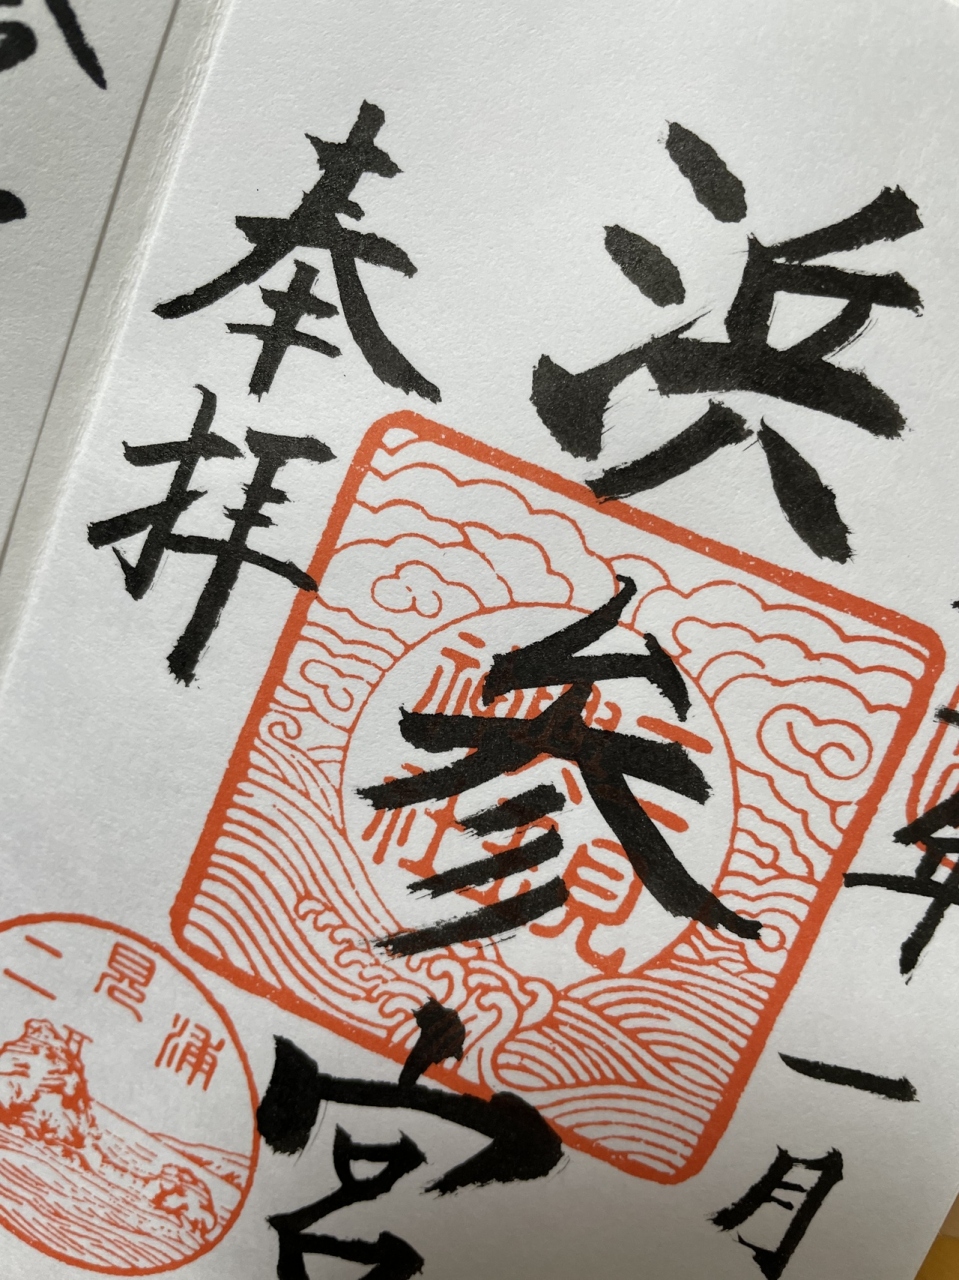 年一月
浜参宮
二見
奉拝
二見浦